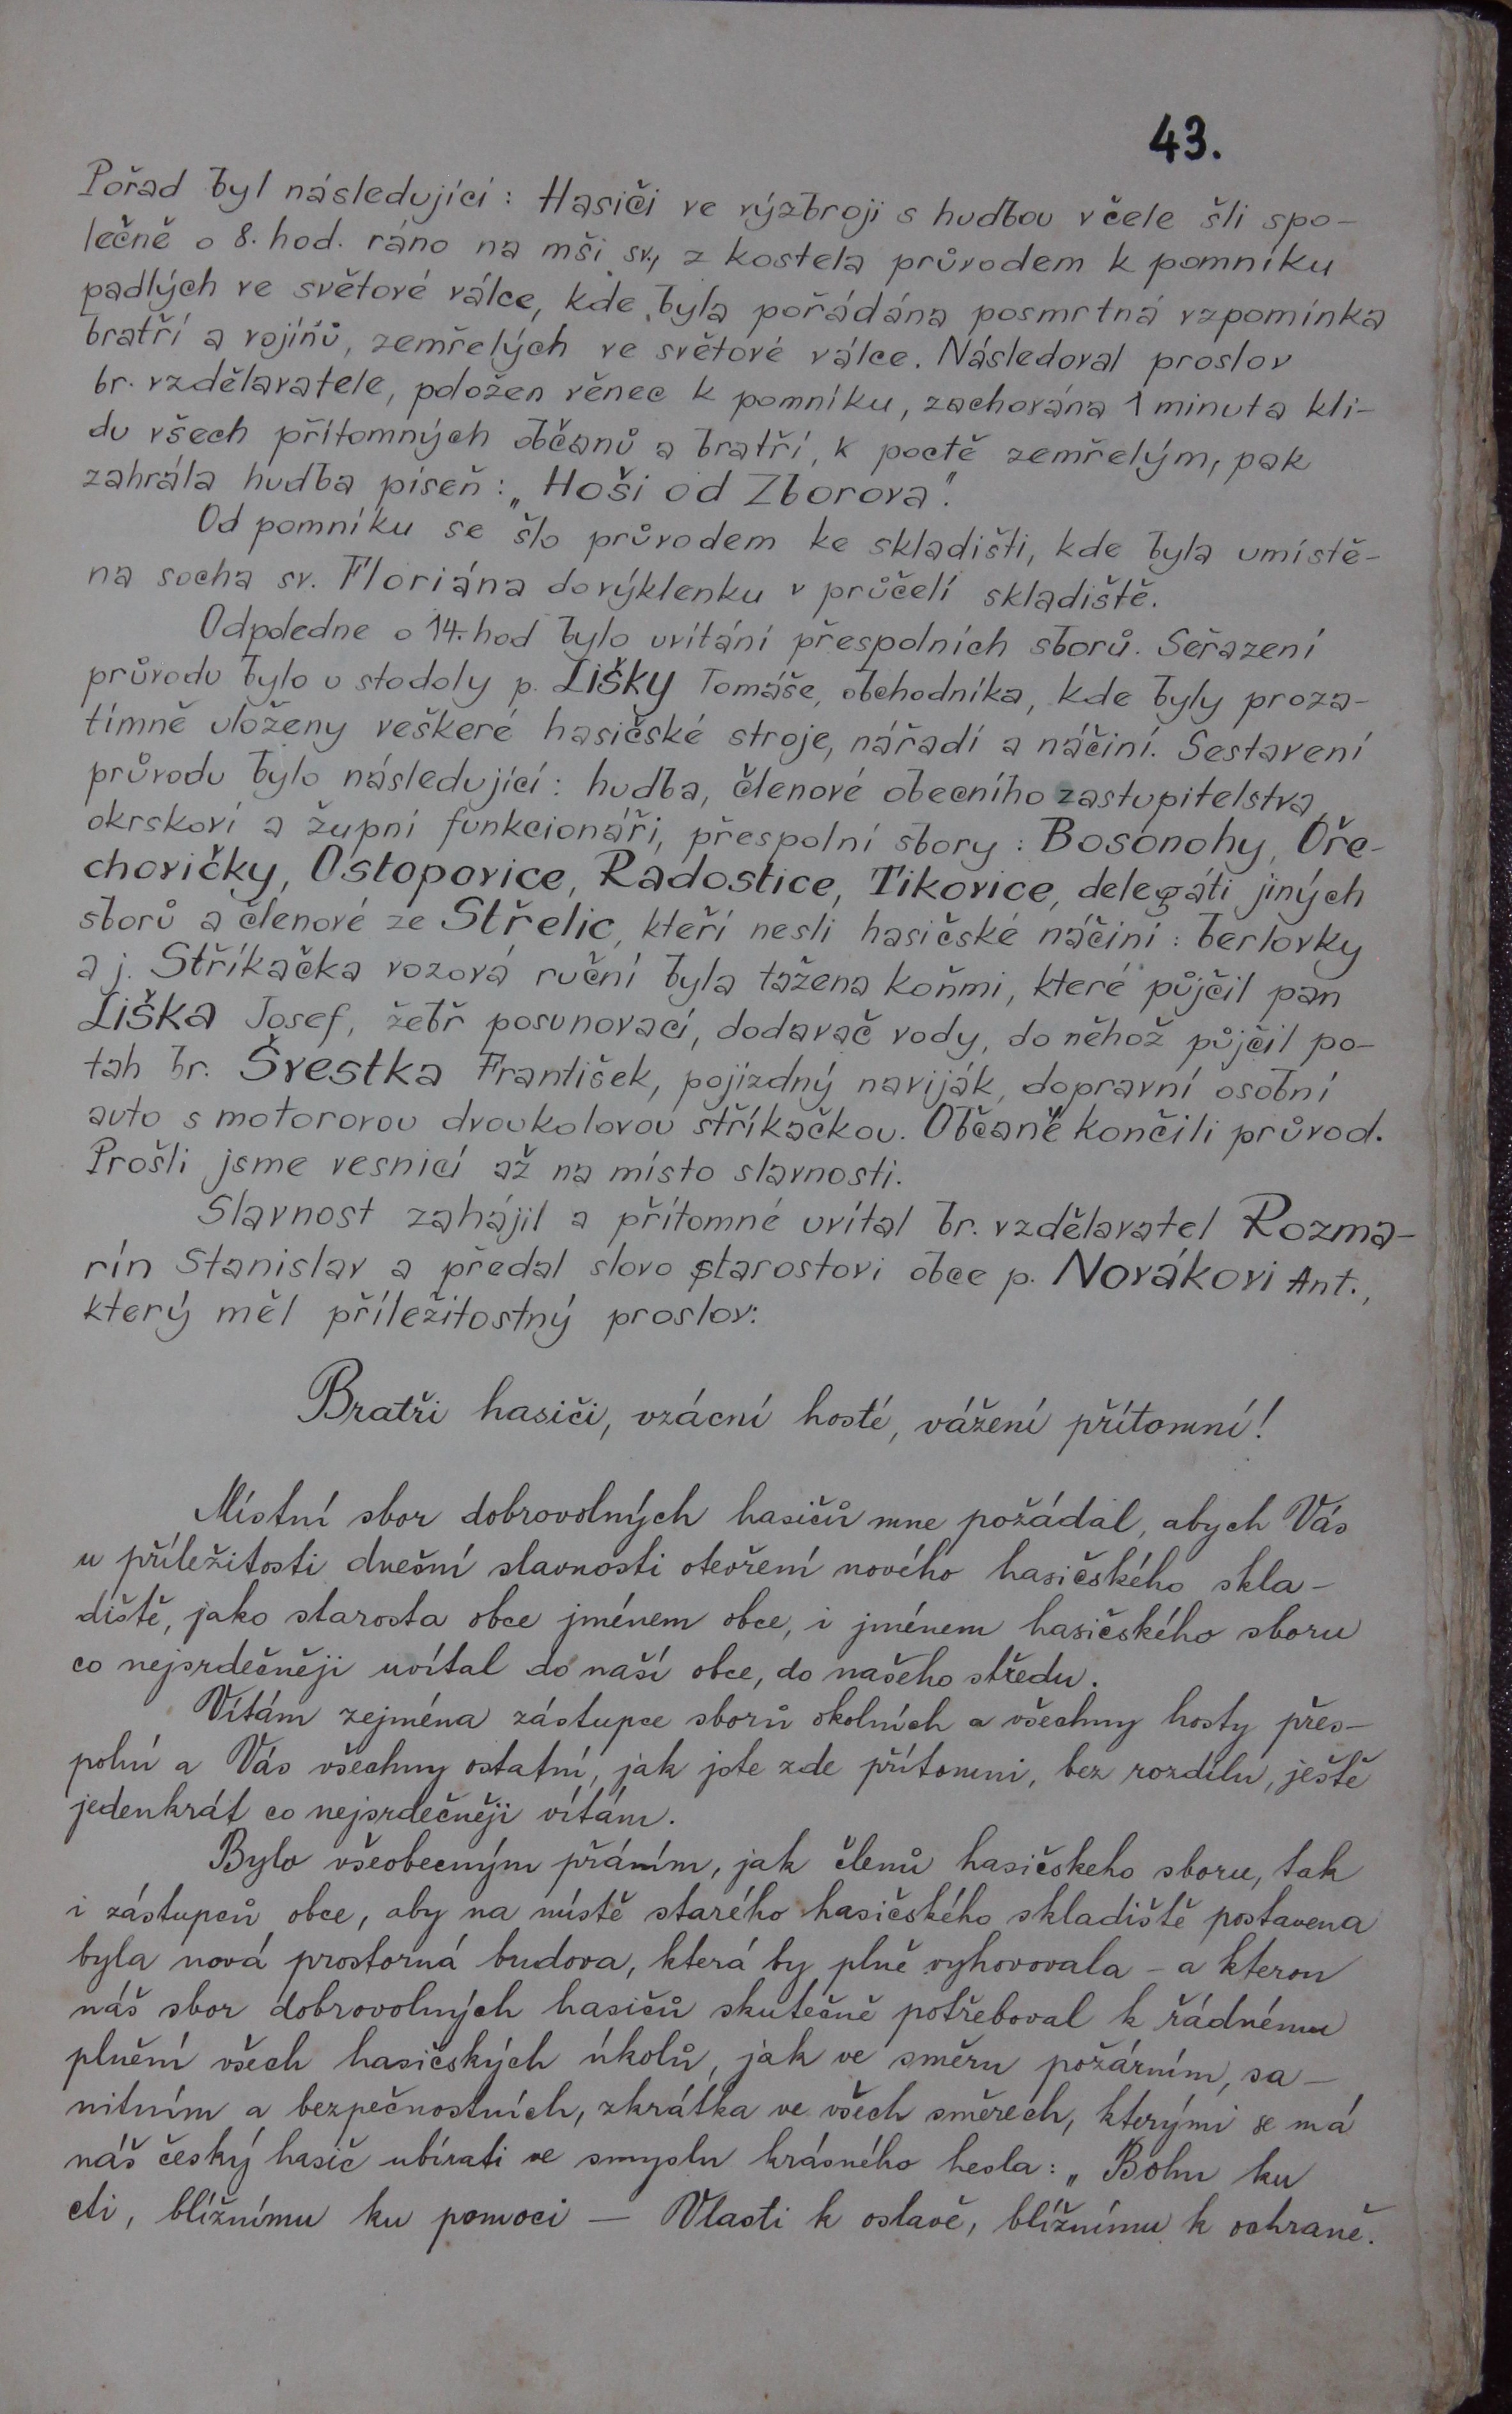 43.
Pořad byl následující: Hasiči ve výzbroji s hudbou v čele šli spo-
lečně o 8. hod. ráno na mši sv., z kostela průvodem k pomníku
padlých ve světové válce, kde byla pořádána posmrtná vzpomínka
bratří a vojínů, zemřelých ve světové válce. Následoval proslov
br. vzdělavatele, položen věnec k pomníku, zachována 1 minuta kli-
du všech přítomných občanů a bratří, k poctě zemřelým, pak
zahrála hudba píseň: „Hoši od Zborova".
Od pomníku se šlo průvodem ke skladišti, kde byla umístě-
na socha sv. Floriána do výklenku v průčelí skladiště.
Odpoledne o 14. hod bylo uvítání přespolních sborů. Seřazení
průvodu bylo u stodoly p. Lišky Tomáše, obchodníka, kde byly proza-
tímně uloženy veškeré hasičské stroje, nářadí a náčiní. Sestavení
průvodu bylo následující: hudba, členové obecního zastupitelstva,
okrskoví a župní funkcionáři, přespolní sbory: Bosonohy, Oře-
chovičky, Ostopovice, Radostice, Tikovice, delegáti jiných
sborů a členové ze Střelic, kteří nesli hasičské náčiní: berlovky
a j. Stříkačka vozová ruční byla tažena koňmi, které půjčil pan
Liška Josef, žebř posunovací, dodavač vody, do něhož půjčil po-
tah br. Švestka František, pojízdný naviják, dopravní osobní
auto s motorovou dvoukolovou stříkačkou. Občané končili průvod.
Prošli jsme vesnicí až na místo slavnosti.
Slavnost zahájil a přítomné uvítal br. vzdělavatel Rozma-
rín Stanislav a předal slovo starostovi obce p. Novákovi Ant.,
který měl příležitostný proslov:
Bratři hasiči, vzácní hosté, vážení přítomní!
Místní sbor dobrovolných hasičů mne požádal, abych Vás
u příležitosti dnešní slavnosti otevření nového hasičského skla-
diště, jako starosta obce jménem obce, i jménem hasičského sboru
co nejsrdečněji uvítal do naší obce, do našeho středu.
Vítám zejména zástupce sborů okolních a všechny hosty přes-
polní a Vás všechny ostatní, jak jste zde přítomni, bez rozdílu, ještě
jedenkrát co nejsrdečněji vítám.
Bylo všeobecným přáním, jak členů hasičskeho sboru, tak
i zástupců obce, aby na místě starého hasičského skladiště postavena
byla nová prostorná budova, která by plně vyhovovala - a kterou
náš sbor dobrovolných hasičů skutečně potřeboval k řádnému
plnění všech hasičských úkolů, jak ve směru požárním, sa-
nitním a bezpečnostních, zkrátka ve všech směrech, kterými se má
náš český hasič ubírati ve smyslu krásného hesla: „Bohu ku
cti, bližnímu ku pomoci - Vlasti k oslavě, bližnímu k ochraně.